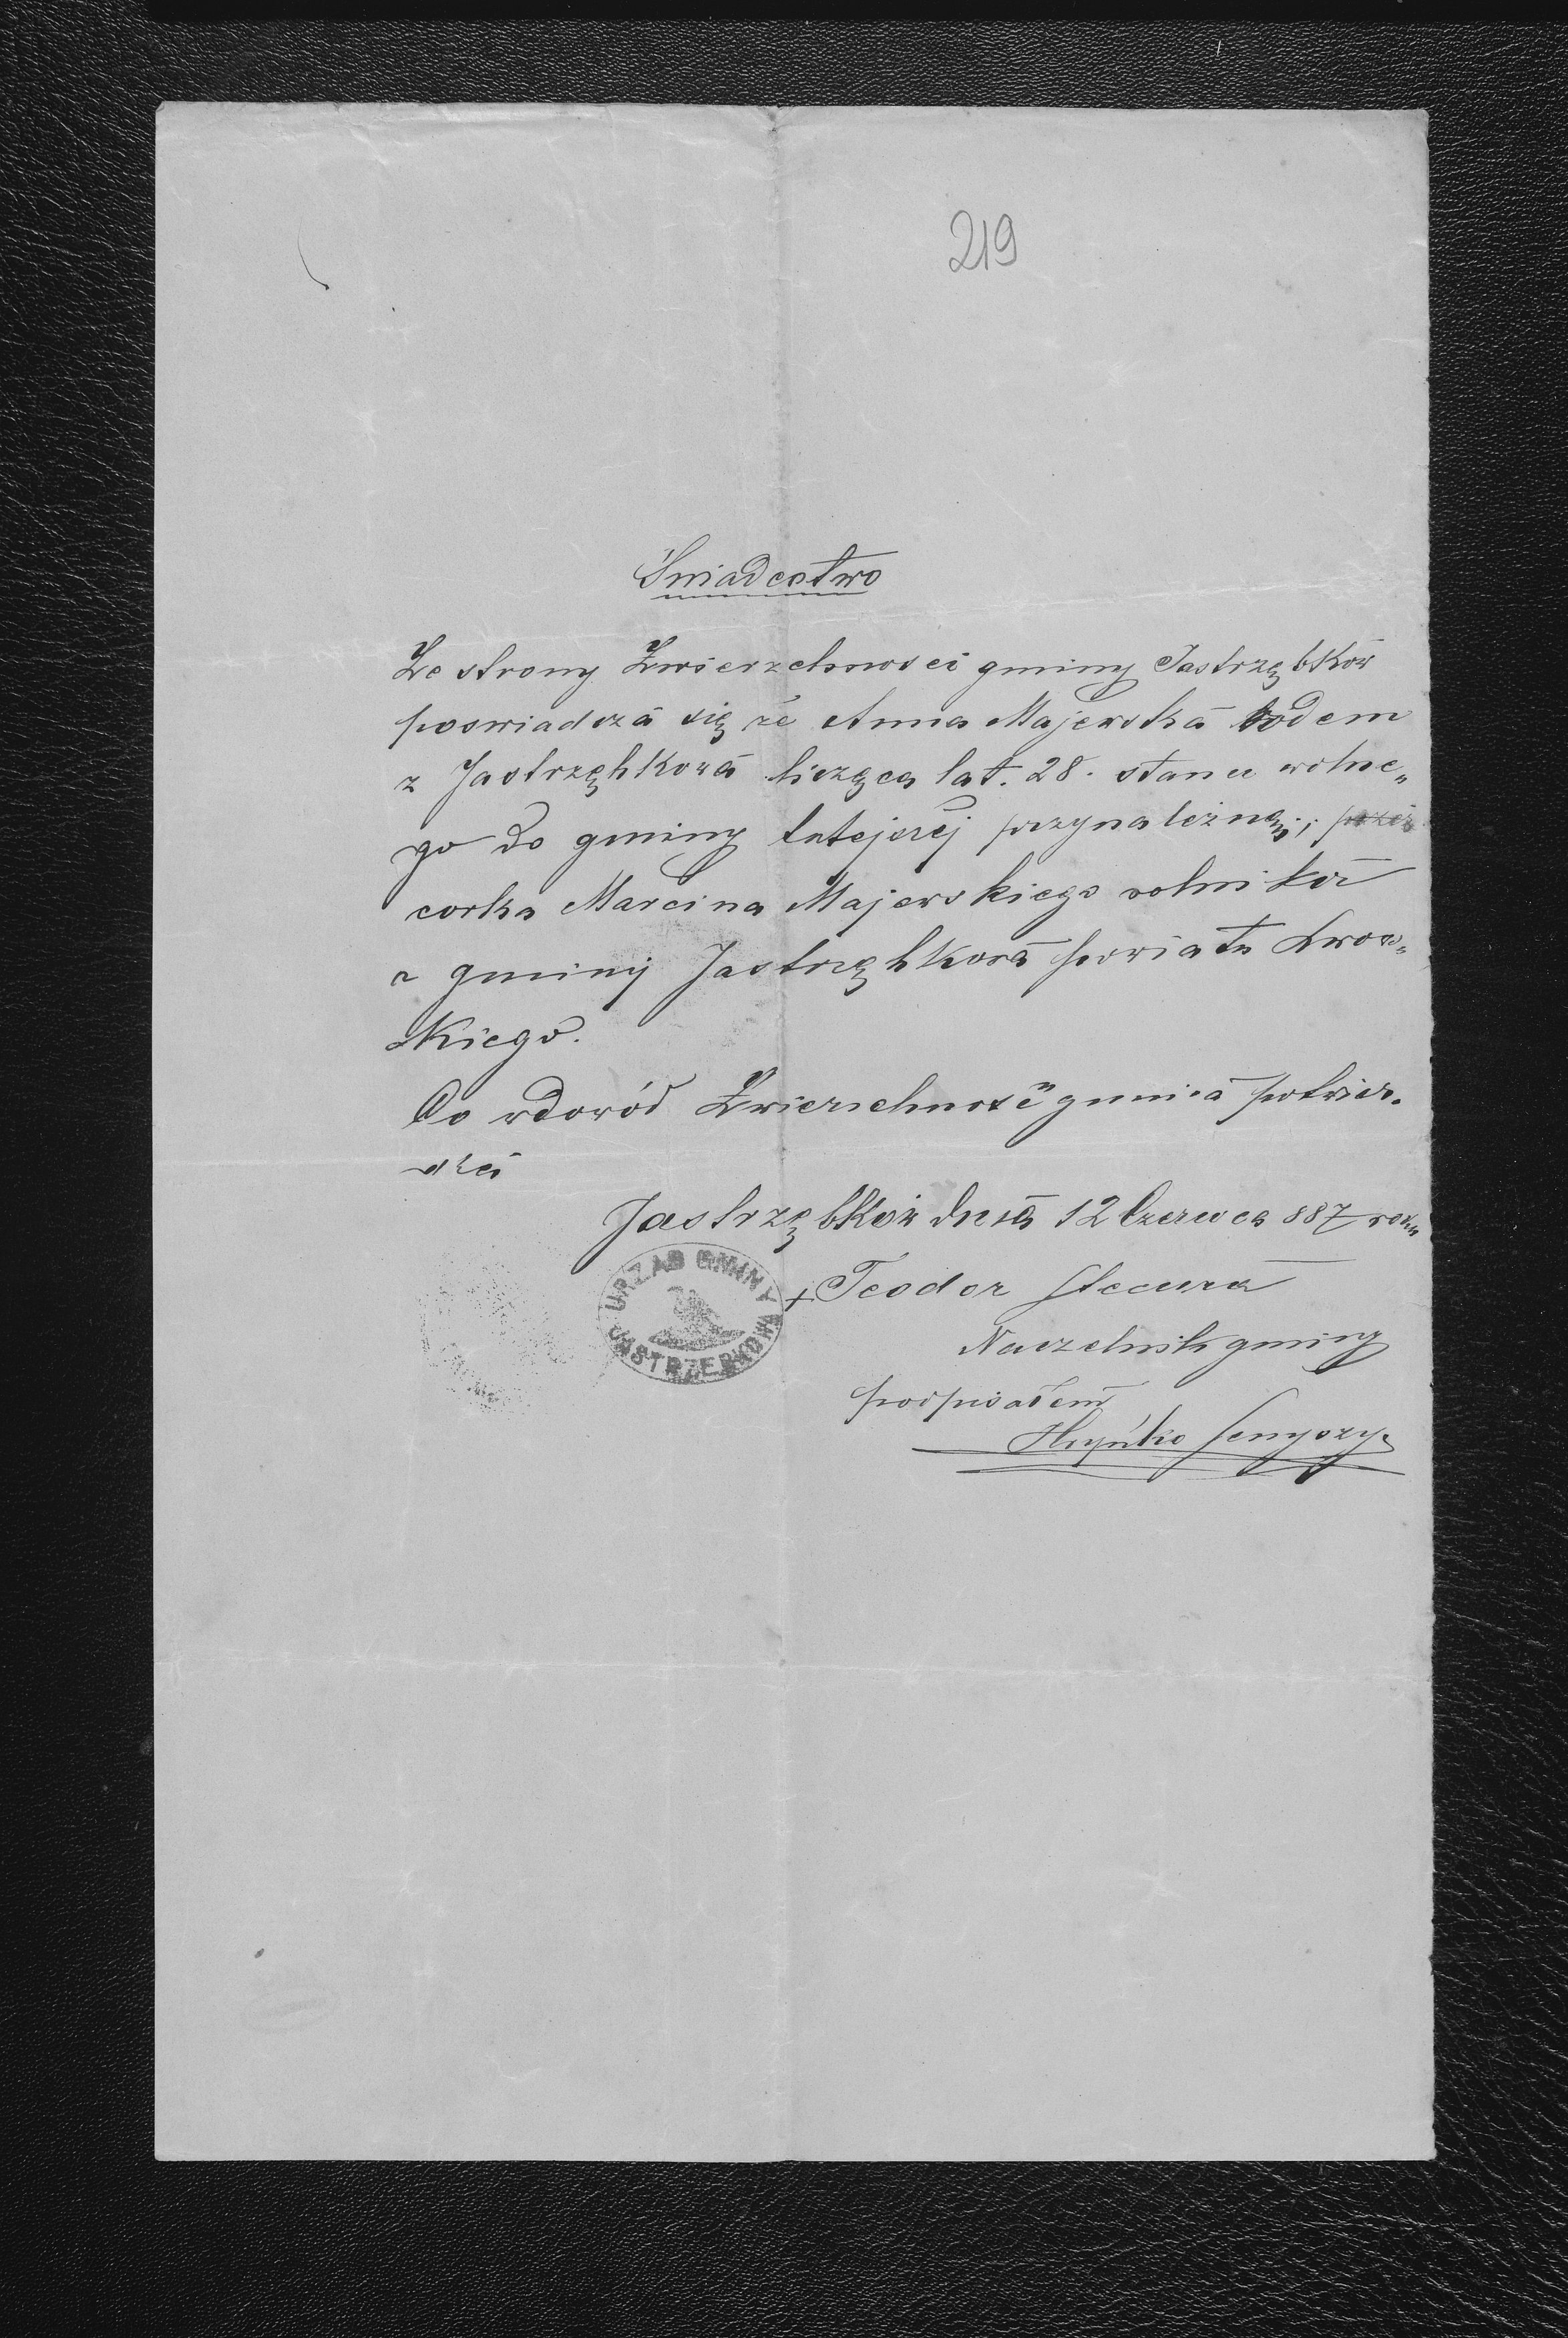 219
Swiadectwo
Ze strony Zwierzchnosci gminy Jastrzębków
poswiadcza się że Anna Majewska rodem
z Jastrzębkowa licząca lat. 28. stanu wolne„
go do gminy tutejszej przynależna;
corka Marcina Majewskiego rolnika
z gminy Jastrzębkowa powiatu Lwow„
skiego.
Co wdowód Zwierzchność gmina potwier.
dza
Jastrzębków dnia 12 Czerwca 887 roku
URZAD GMINY
JASTRZEBKOWA
+ Teodor Stecura
Naczelnik gminy
podpisałem
Hryńko